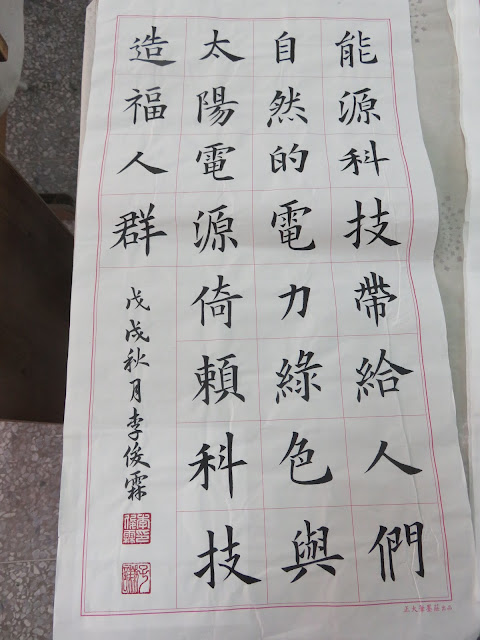 能源科技帶給人們
自然的電力綠色與
太陽電源倚賴科技
造福人群
戊戌秋月李俊霖